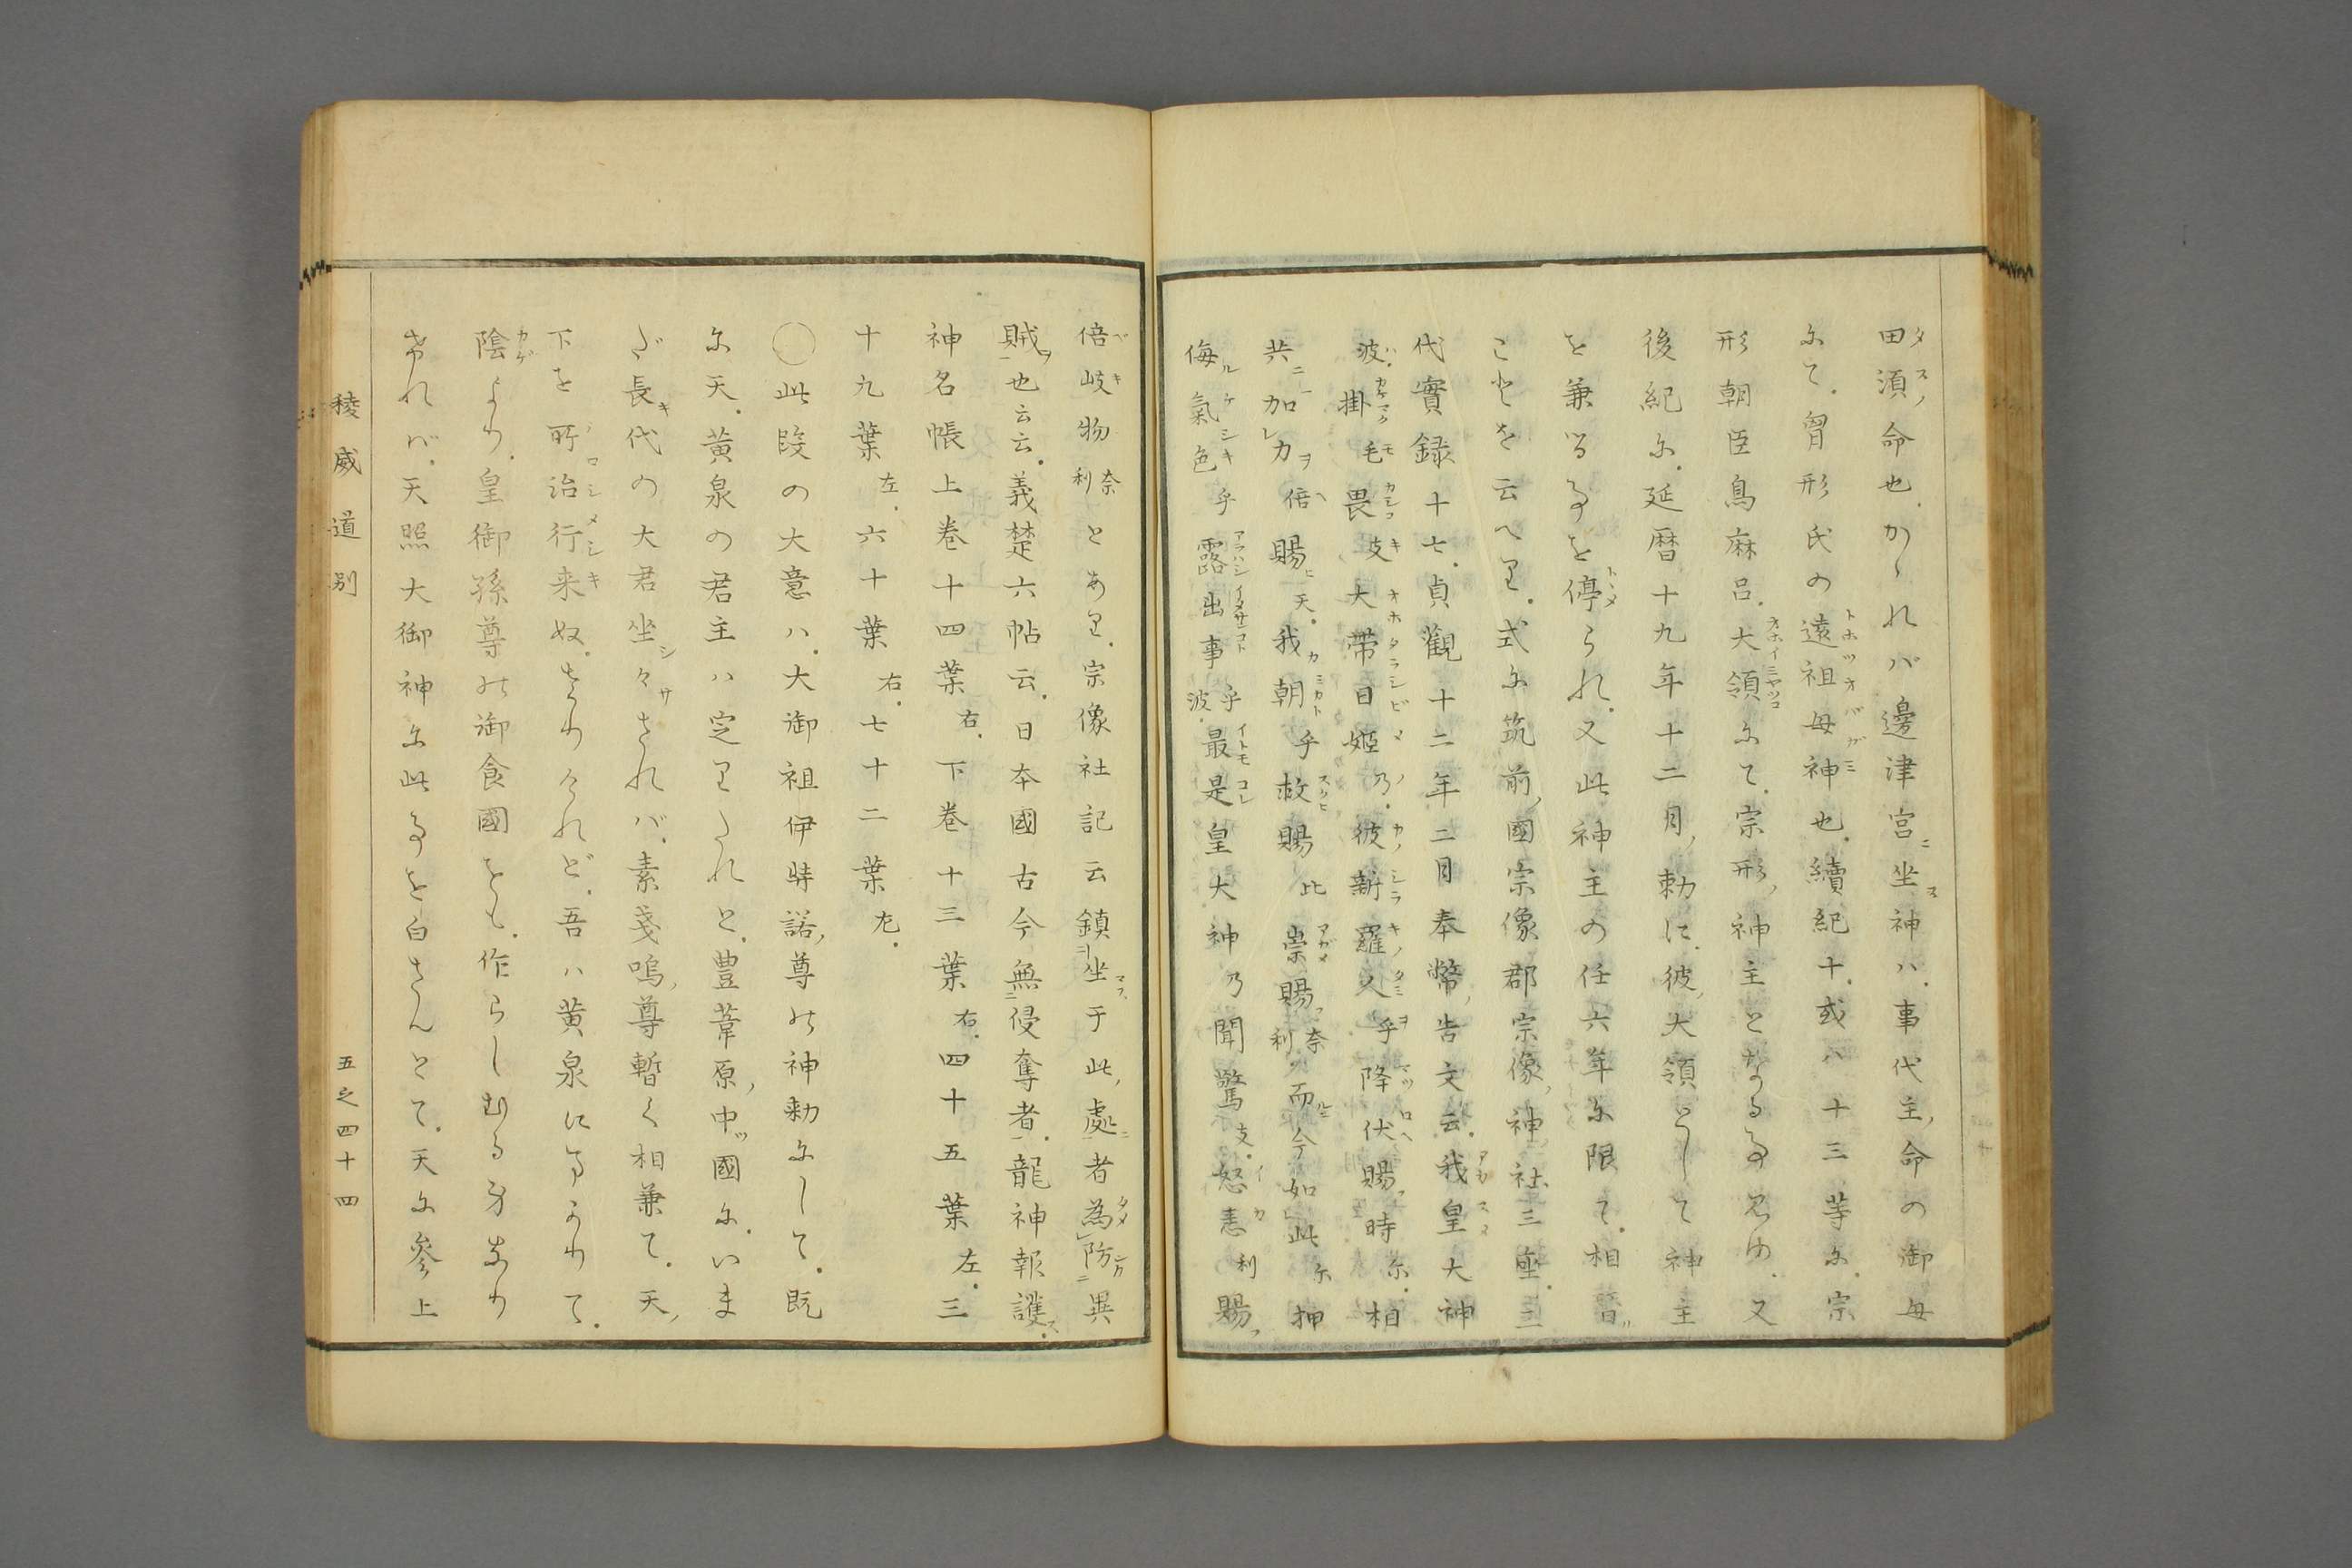 田湏命也かゝれバ邊津宮坐神ハ事代主命の御母
にて胷形氏の遠祖母神也續紀十或ハ十三等に宗
形朝臣鳥麻呂大領にて宗形神主となる事見ゆ又
後紀に延暦十九年十二月勅に彼大領として神主
を兼る事を停られ又此神主の任六年に限て相替
ことを云へり式に筑前國宗像郡宗像神社三座三
代實録十七貞觀十二年二月奉幣告文云我皇大神
波掛毛畏支大帯日姫乃彼新羅人乎降伏賜時尓相
共加力倍賜天我朝乎救賜比崇賜奈利而今如此尓押
侮氣色乎露出事乎波最是皇大神乃聞驚支怒恚利賜
倍岐物奈利とあり宗像社記云鎮坐于此處者為防異
賊也云云義楚六帖云日本國古今無侵奪者龍神報護
神名帳上巻十四葉右下巻十三葉右四十五葉左三
十九葉左六十葉右七十二葉左
○此段の大意ハ大御祖伊弉諾尊の神勅にして既
に天黄泉の君主ハ定りたれと豊葦原中國にいま
だ長代の大君坐々さればバ素戔嗚尊暫く相兼て天
下を所治行来ぬさりけれど吾ハ黄泉に事よりて
陰より皇御孫尊の御食國をも作らしむる身なり
けれバ天照大御神に此事を白さんとて天に参上
稜威道別
五之四十四